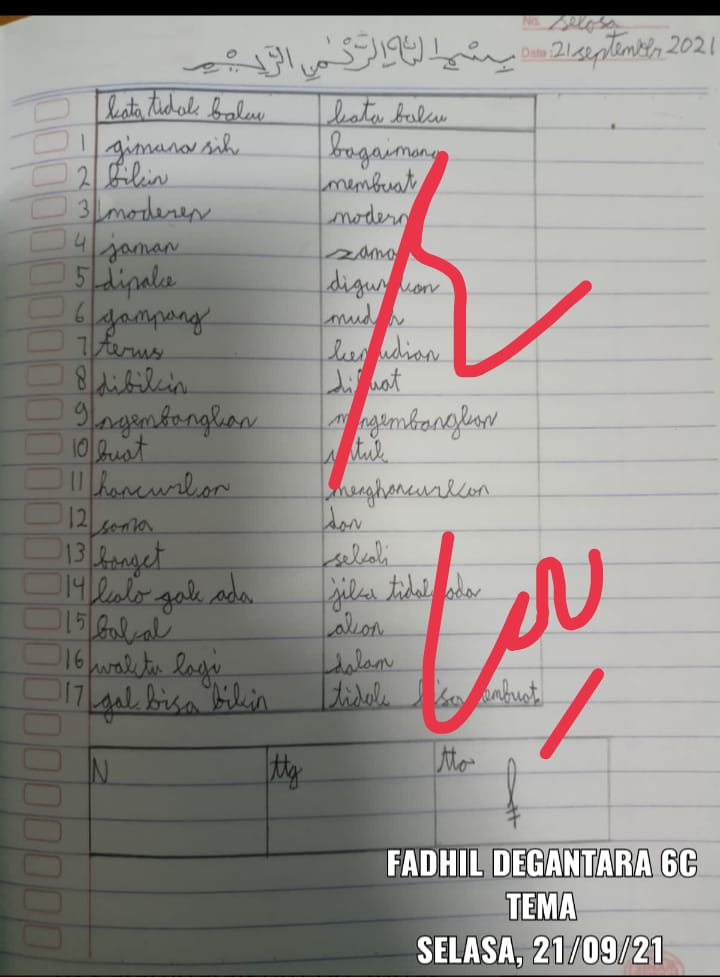 No. Selasa
Date: 21 september 2021
بسم الله الرحمن الرحيم
kata tidak baku kata baku
1 gimana sih bagaimana
2 bikin membuat
3 moderen modern
4 jaman zaman
5 dipake digunakan
6 gampang mudah
7 terus kemudian
8 dibikin dibuat
9 ngembangkan mengembangkan
10 buat untuk
11 hancurkan menghancurkan
12 sama dan
13 banget sekali
14 kalo gak ada jika tidak ada
15 bakal akan
16 waktu lagi dalam
17 gak bisa bikin tidak bisa membuat
N ttg tto
FADHIL DEGANTARA 6C
TEMA
SELASA, 21/09/21